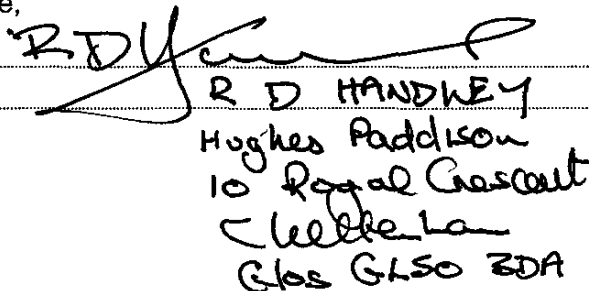 e,
R D
R D HANDLEY
Hughes Paddison
10 Royal Crescent
Cheltenham
Glos GL50 3DA